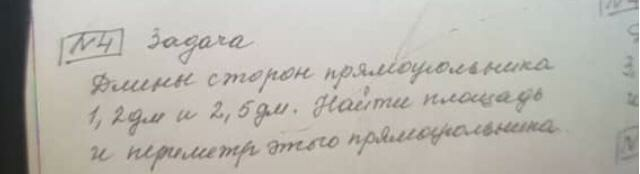 №4 Задача
Длины сторон прямоугольника
1,2дм и 2,5дм. Найти площадь
и периметр этого прямоугольника.